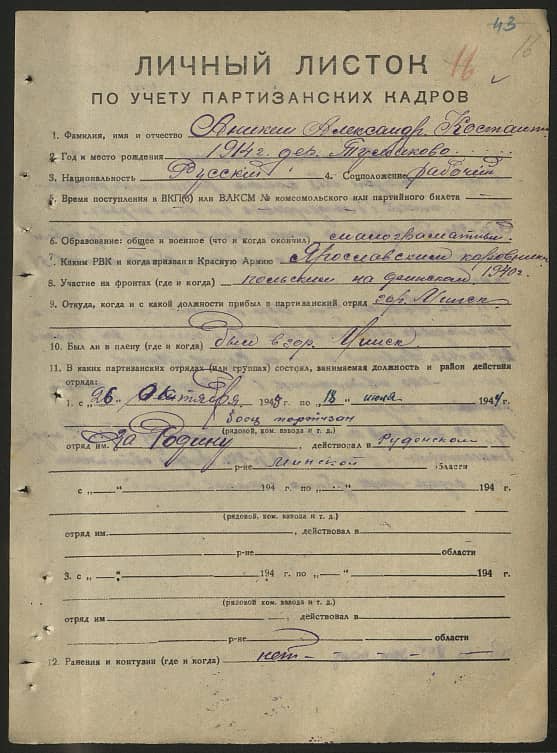 43
16
16
ЛИЧНЫЙ ЛИСТОК
ПО УЧЕТУ ПАРТИЗАНСКИХ КАДРОВ
1. Фамилия, имя и отчество Аникин Александр Костаит
2. Год и место рождения 1914 г. дер.
3. Национальность Русский 4. Соцположение рабочий
5. Время поступления в ВКП(б) или ВЛКСМ № комсомольского или партийного билета
6. Образование: общее и военное (что и когда окончил) малограматный
7. Каким РВК и когда призван в Красную Армию Ярославским 1940г.
8. Участие на фронтах (где и когда) польским на финском
9. Откуда, когда и с какой должности прибыл в партизанский отряд гор. Минск
10. Был ли в плену (где и когда) был в гор. Минск
11. В каких партизанских отрядах (или группах) состоял, занимаемая должность и район действия
отряда:
1. с „26" Октября 1943 г. по „18" июля 1944 г.
боец партизан
(рядовой, ком. взвода и т. д.)
отряд им. За Родину, действовал в Руденском
р-не Минской области
с „—" 194 г. по „—" 194 г.
(рядовой, ком. взвода и т. д.)
отряд им. , действовал в
р-не области
3. с „—" 194 г. по „—" 194 г.
(рядовой ком. взвода и т. д.)
отряд им , действовал в
р-не области
12. Ранения и контузии (где и когда) нет